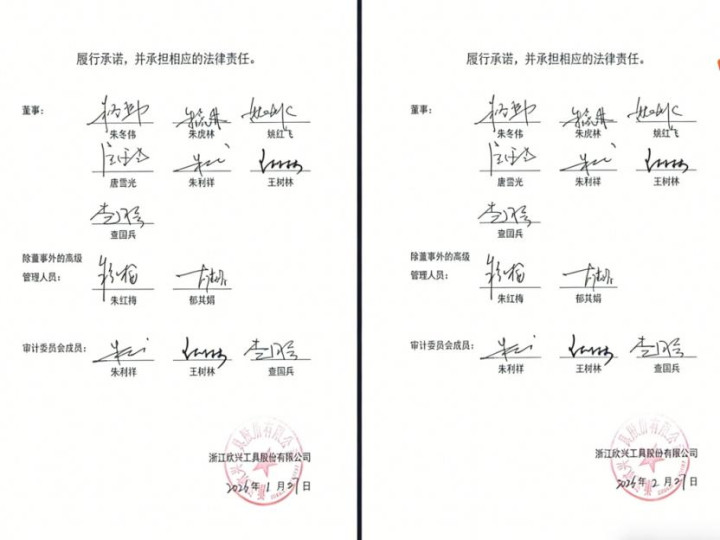 履行承诺，并承担相应的法律责任。
董事：
朱冬伟 朱虎林 姚红飞
唐雪光 朱利祥 王树林
查国兵
除董事外的高级
管理人员：
朱红梅 郁其娟
审计委员会成员：
朱利祥 王树林 查国兵
浙江欣兴工具股份有限公司
2026年1月27日
履行承诺，并承担相应的法律责任。
董事：
朱冬伟 朱虎林 姚红飞
唐雪光 朱利祥 王树林
查国兵
除董事外的高级
管理人员：
朱红梅 郁其娟
审计委员会成员：
朱利祥 王树林 查国兵
浙江欣兴工具股份有限公司
2026年2月27日